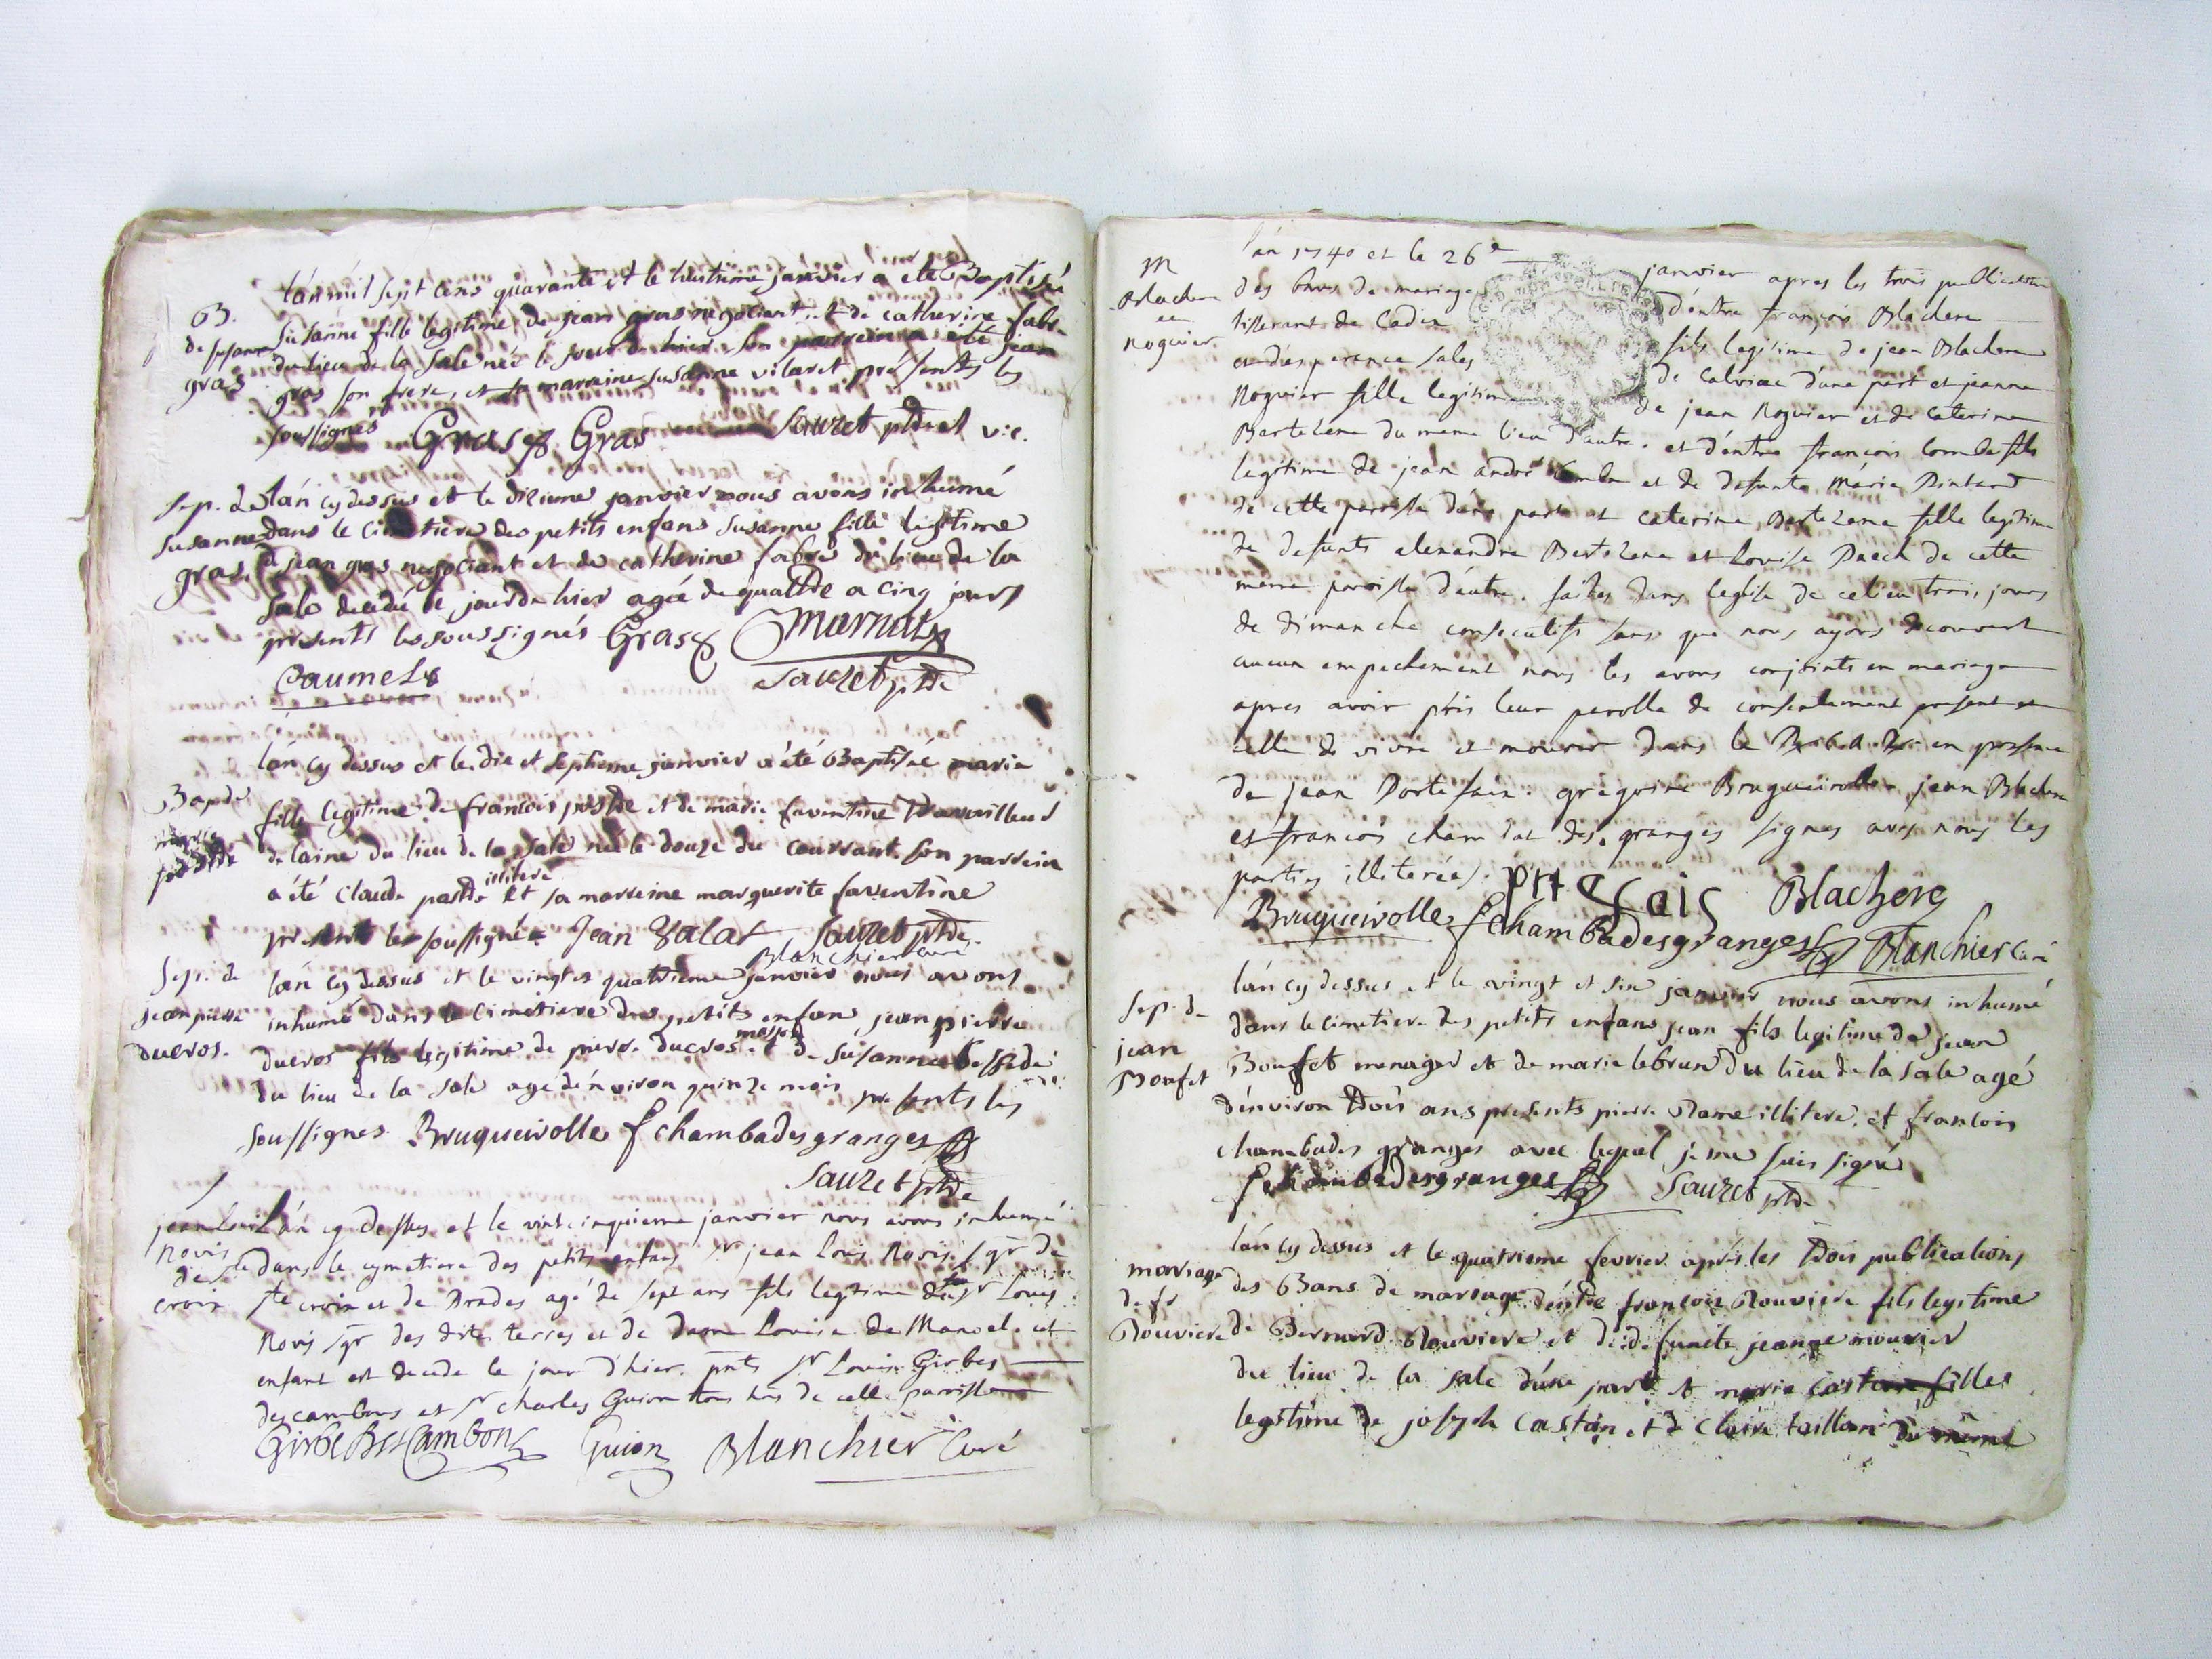 B.
de susanne
gras
lán mil sept cens quarante et le huitieme janvier a eté Baptisée
susanne fille legitime de jean gras negotiant et de catherine fabre
du lieu de la sale née le jour de hier son parrein a eté jean
gras son frere, et sa marraine susanne vilaret présents les
soussignés Gras Gras Sauzet ptre et vic.
sep. de
susanne
gras.
lán cy dessus et le dixieme janvier nous avons inhumé
dans le cimetiere des petits enfans susanne fille legitime
de jean gras negociant et de catherine fabre du lieu de la
sale decedée le jour de hier agée de quattre a cinq jours
presents les soussignés Gras Marnat
Daumel Sauzet ptre
Bap de
marie
lán cy dessus et le dix et septieme janvier a été Baptisée marie
fille legitime de francois pastre et de marie faventine travailleur
de laine du lieu de la sale née le douze du courrant son parrein
a été claude pastre illiteré et sa marreine marguerite faventine
présents les soussignés Jean Salat Sauzet ptre.
Blanchier curé
Sep. de
jean pierre
ducros.
lán cy dessus et le vingt et quattrieme janvier nous avons
inhumé dans le cimetiere des petits enfans jean pierre
ducros fils legitime de pierre ducros masson et de susanne
du lieu de la sale agé dénviron quinze mois presents les
soussignes Brugueirolle f chambadesgranges
Sauzet ptre
S
jean louis
Novis
de ste
croix
L'án cy dessus et le vint cinquieme janvier nous avons inhumé
dans le cymetiere des petits enfans sr jean louis Novis sgr de
ste croix et de Brades agé de sept ans fils legitime de feu sr Louis
Novis sgr des dites terres et de dame Louise de Manoel. cet
enfant est decede le jour d'hier. pnts sr Louis Girbes
descambous et sr charles Guion tous deux de cette parroisse
Guion Blanchier Curé
M
Blachere
et
Noguier
l'án 1740 et le 26e janvier apres les trois publications
des bans de mariage d'entre françois Blachere
tisserant de Cadix fils legitime de jean Blachere
et d'esperance sales de Calviac d'une part et jeanne
Noguier fille legitime de jean Noguier et de Caterine
Bertezene du meme lieu d'autre. et d'entre françois Combe fils
legitime de jean andré Combe et de defunte Marie Pintard
de cette paroisse d'une part et caterine Bertezene fille legitime
de defunts alexandre Bertezene et Louise Puech de cette
meme paroisse d'autre, faites dans leglise de ce lieu trois jours
de dimanche consecutifs sans que nous ayons decouvert
aucun empechement nous les avons conjoints en mariage
apres avoir pris leur parolle de consentement present et
celle de vivre et mourir dans le en presence
de jean Portefaix. gregoire Bruguierolle. jean Blachere
et francois chambat des granges signes avec nous les
parties illiterées. Blachere
Bruguierolle f chambadesgranges Blanchier Curé
sep. de
jean
Boufet
lán cy dessus et le vingt et six janvier nous avons inhumé
dans le cimetiere des petits enfans jean fils legitime de jean
Boufet menager et de marie lebrun du lieu de la sale agé
dénviron trois ans presents pierre Dame illitere, et francois
chambades granges avec lequel je me suis signé
f chambadesgranges Sauzet ptre
mariage
de fr
Rouviere
lán cy dessus et le quatrieme fevrier aprés les trois publications
des Bans de mariage déntre françois Rouviere fils legitime
de Bernard Rouviere et de defuncte jeanne mourier
du lieu de la sale dúne part et marie Castan filles
legitime de joseph Castan et de Claire taillan du même